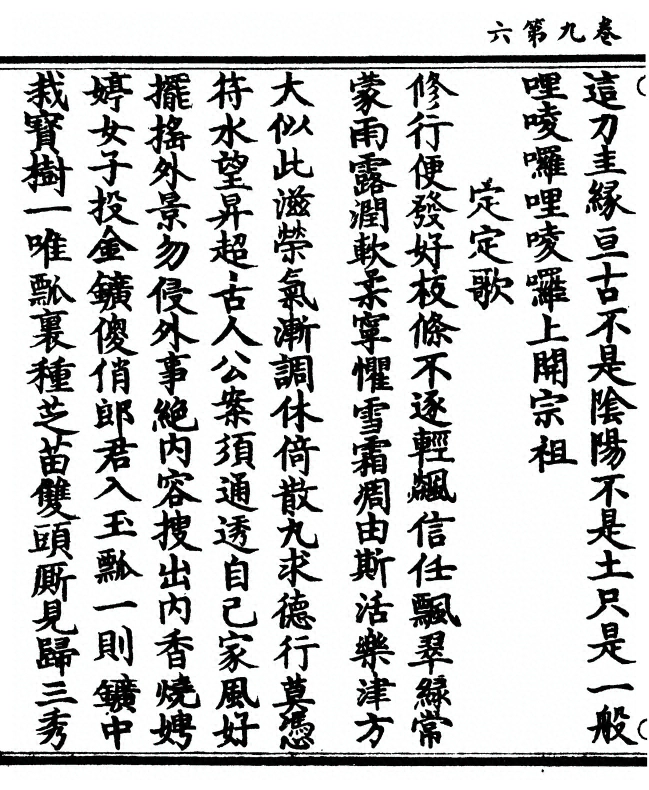 卷九第六
這刀圭緣亘古不是隂陽不是土只是一般
哩唛囉哩唛囉上開宗祖
定定歌
修行便發好枝條不逐輕飈信任飄翠緑常
蒙雨露潤軟柔寧懼雪霜凋由斯活樂津方
大似此滋榮氣漸調休倚散九求德行莫憑
持水望昇超古人公案須通透自己家風好
擺搖外景勿侵外事絶内容搜出内香燒娉
婷女子投金鑛傻俏郎君入玉瓢一則鑛中
栽寳樹一唯瓢裏種芝苗雙頭厮見歸三秀